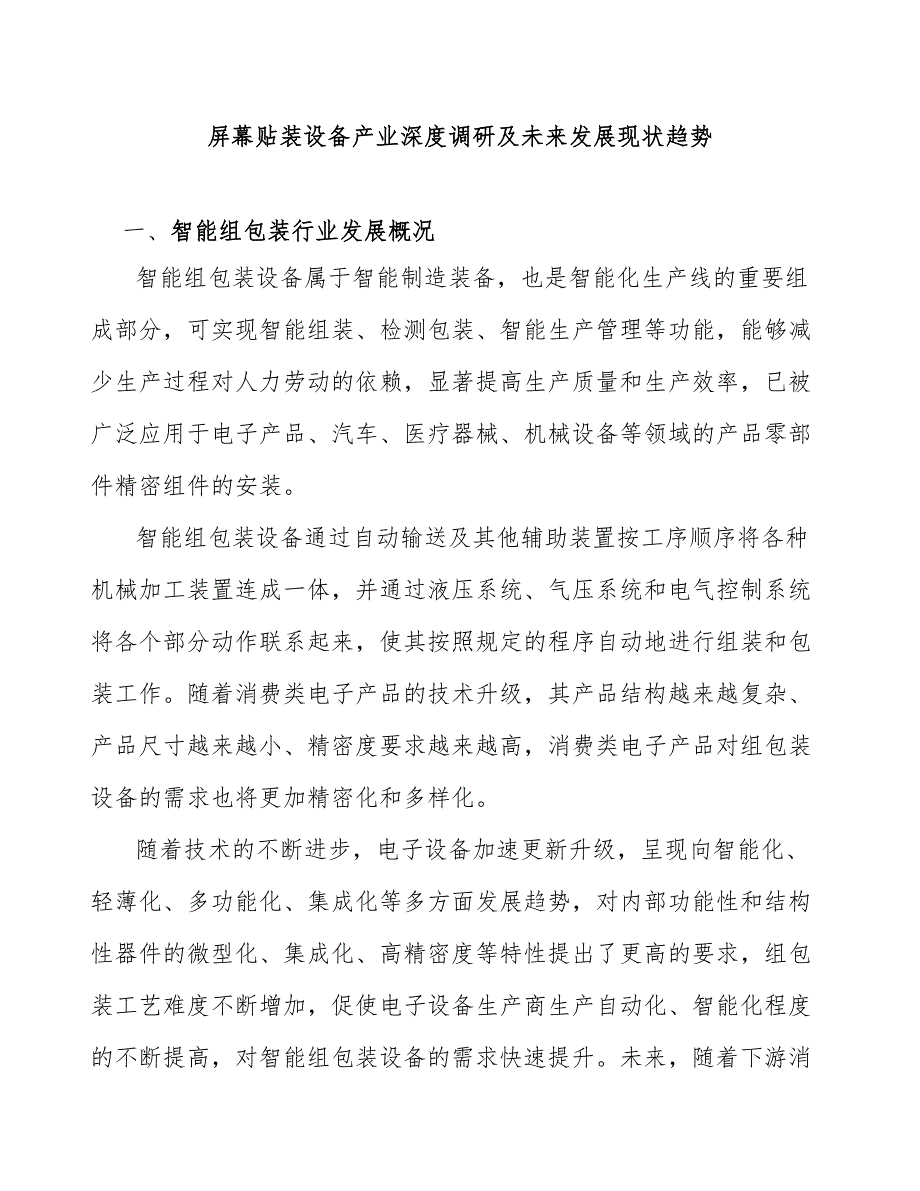 屏幕贴装设备产业深度调研及未来发展现状趋势
一、智能组包装行业发展概况
智能组包装设备属于智能制造装备，也是智能化生产线的重要组
成部分，可实现智能组装、检测包装、智能生产管理等功能，能够减
少生产过程对人力劳动的依赖，显著提高生产质量和生产效率，已被
广泛应用于电子产品、汽车、医疗器械、机械设备等领域的产品零部
件精密组件的安装。
智能组包装设备通过自动输送及其他辅助装置按工序顺序将各种
机械加工装置连成一体，并通过液压系统、气压系统和电气控制系统
将各个部分动作联系起来，使其按照规定的程序自动地进行组装和包
装工作。随着消费类电子产品的技术升级，其产品结构越来越复杂、
产品尺寸越来越小、精密度要求越来越高，消费类电子产品对组包装
设备的需求也将更加精密化和多样化。
随着技术的不断进步，电子设备加速更新升级，呈现向智能化、
轻薄化、多功能化、集成化等多方面发展趋势，对内部功能性和结构
性器件的微型化、集成化、高精密度等特性提出了更高的要求，组包
装工艺难度不断增加，促使电子设备生产商生产自动化、智能化程度
的不断提高，对智能组包装设备的需求快速提升。未来，随着下游消